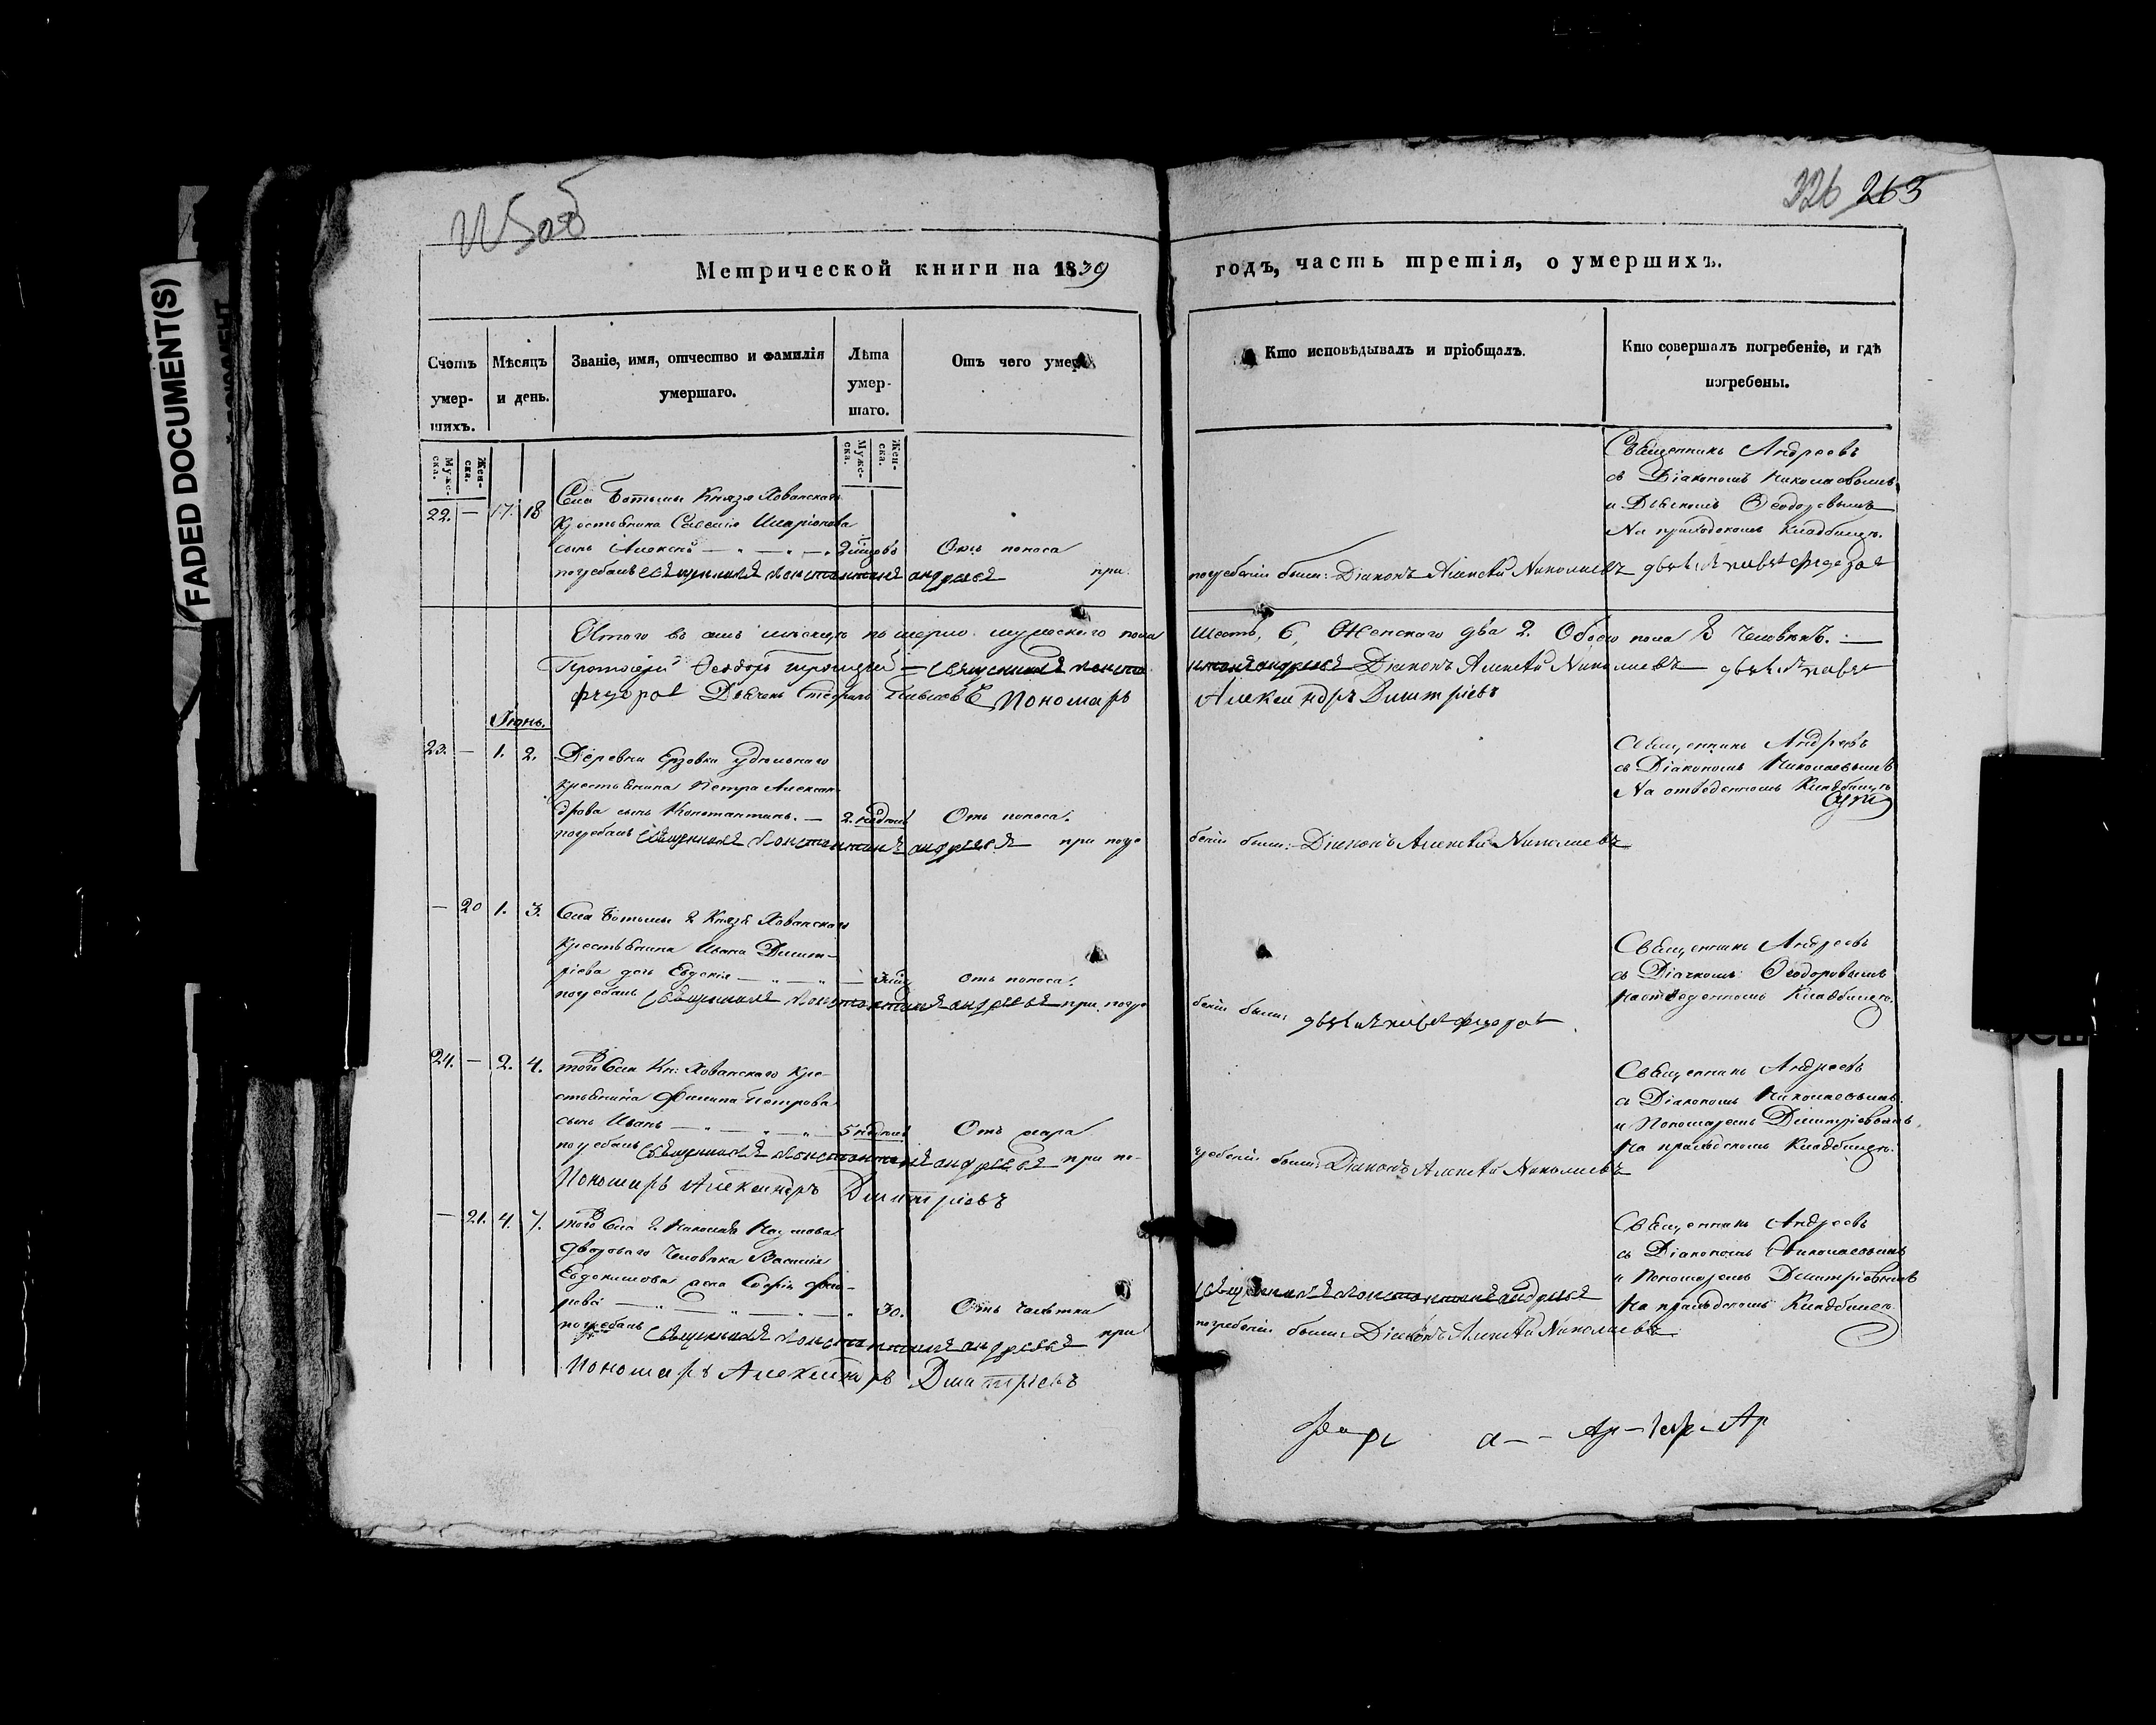 FADED DOCUMENT(S)
326 263
Метрической книги на 1839 годъ, часть третія, о умершихъ.
Счетъ умер-шихъ.
Муже-ска.
Жен-ска.
Мѣсяцъ и день.
Званіе, имя, отчество и фамилія умершаго.
Лѣта умер-шаго.
Муже-ска.
Жен-ска.
Отъ чего умеръ
Кто исповѣдывалъ и пріобщалъ.
Кто совершалъ погребеніе, и гдѣ погребены.
22. — 17. 18
Села Ботьмы Князя Хованскаго
Крестьянина Иларіонова
сынъ Алексѣй
Отъ поноса
погребалъ Священникъ Константинъ Андреевъ при
погребеніи были: Діаконъ Алексѣй Николаевъ
Священникъ Андреевъ
съ Діакономъ Николаевымъ
и Дьячкомъ Ѳеодоровымъ
На приходскомъ Кладбищѣ.
Итого въ маѣ мѣсяцѣ померло мужескаго пола шесть, 6, Женскаго два 2. Обоего пола 8 Человѣкъ. —
Протоіерей Ѳеодоръ Троицкій — Священникъ Константинъ Андреевъ Діаконъ Алексѣй Николаевъ
Дьячекъ Пономарь Александръ Димитріевъ
Іюнь.
23. — 1. 2.
Деревни Ерзовки удѣльнаго
крестьянина Петра Алексан-
дрова сынъ Константинъ. — 2. недѣль
Отъ поноса.
погребалъ Священникъ Константинъ Андреевъ при погре
беніи были: Діаконъ Алексѣй Николаевъ
Священникъ Андреевъ
съ Діакономъ Николаевымъ
На отведенномъ Кладбищѣ
— 20 1. 3.
Села Ботьмы Г. Князя Хованскаго
Крестьянина Ивана Димит-
ріева дочь Евдокія
отъ поноса.
погребалъ Священникъ Константинъ Андреевъ при погре
беніи были:
Священникъ Андреевъ
съ Дьячкомъ Ѳеодоровымъ
на отведенномъ Кладбищѣ.
24. — 2. 4.
того Села Кн: Хованскаго Кре-
стьянина Филипа Петрова
сынъ Иванъ — 5 недѣль
Отъ жара
погребалъ Священникъ Константинъ Андреевъ при по-
гребеніи были: Діаконъ Алексѣй Николаевъ
Пономарь Александръ Димитріевъ
Священникъ Андреевъ
съ Діакономъ Николаевымъ
и Пономаремъ Димитріевымъ
На приходскомъ Кладбищѣ.
— 21. 4. 7.
того Села Г. Николая Наумова
двороваго Человѣка Василія
Евдокимова жена Софія
30.
Отъ чахотки
Священникъ Константинъ Андреевъ
погребалъ Священникъ Константинъ Андреевъ при
погребеніи были: Діаконъ Алексѣй Николаевъ
Пономарь Александръ Димитріевъ
Священникъ Андреевъ
съ Діакономъ Николаевымъ
и Пономаремъ Димитріевымъ
На приходскомъ Кладбищѣ